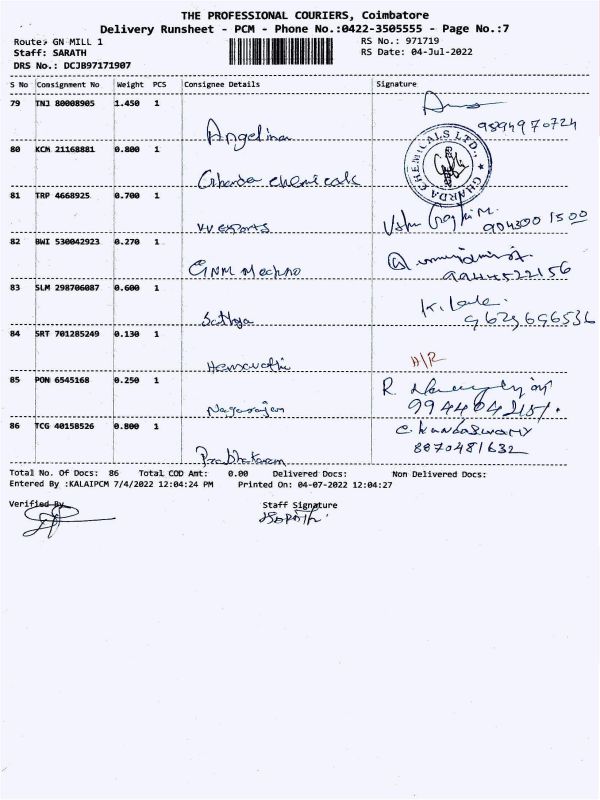 THE PROFESSIONAL COURIERS, Coimbatore
Delivery Runsheet - PCM - Phone No.:0422-3505555 - Page No.:7
Route: GN MILL 1
RS No.: 971719
Staff: SARATH
RS Date: 04-Jul-2022
DRS No.: DCJB97171907
S No Consignment No Weight PCS Consignee Details Signature
79 TNJ 80008905 1.450 1
Angelina 9894970724
80 KCM 21168881 0.800 1
Gharda chemicals
GHARDA CHEMICALS LTD.,
81 TRP 4668925 0.700 1
VV Exports 9043001500
82 BWI 530042923 0.270 1
GNM Mechno 9944522156
83 SLM 298706087 0.600 1
Sathya 9629696536
84 SRT 701285249 0.130 1
Hemavathi A/R
85 PON 6545168 0.250 1
Nagarajan R.
86 TCG 40158526 0.800 1
Prabhakaran C. KANDASWAMY
8870481632
Total No. Of Docs: 86 Total COD Amt: 0.00 Delivered Docs: Non Delivered Docs:
Entered By :KALAIPCM 7/4/2022 12:04:24 PM Printed On: 04-07-2022 12:04:27
Verified By
Staff Signature